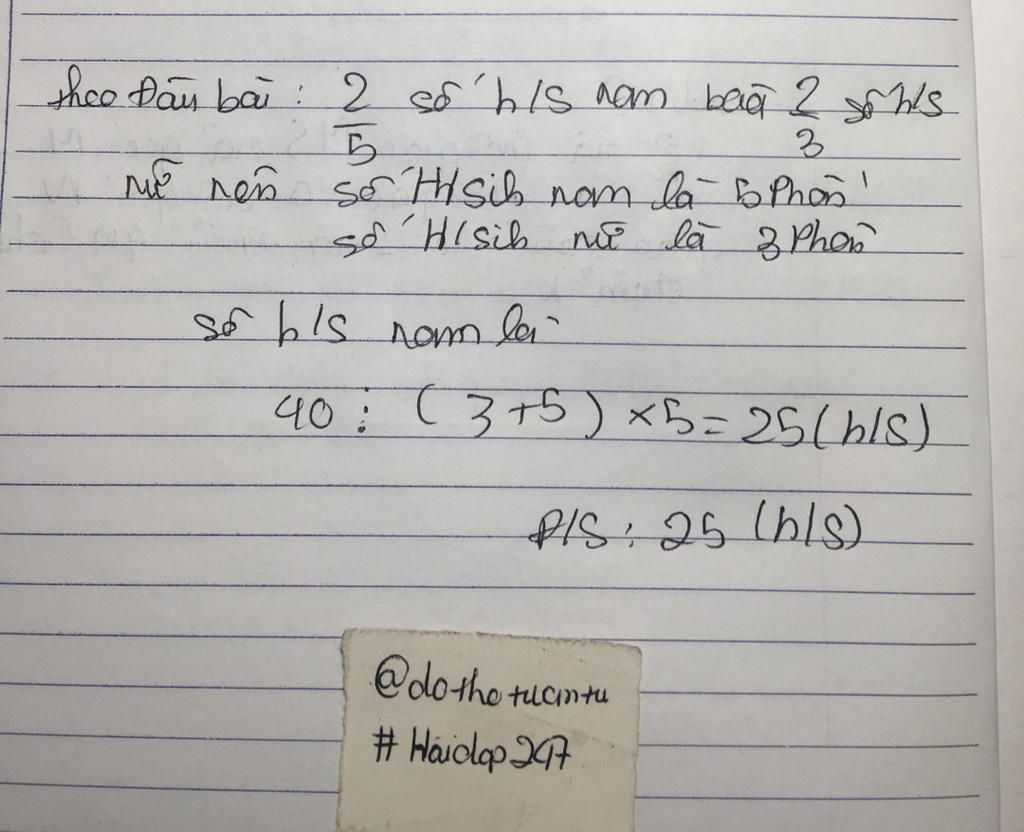 theo Đầu bài : 2/5 số h/s nam bằng 2/3 số h/s
nữ nên số H/sih nam là 5 Phần
số H/sih nữ là 3 Phần
số h/s nam là
40 : ( 3 + 5 ) × 5 = 25 ( h/s )
Đ/S : 25 ( h/s )
@dothotuantu
# Hoidap247